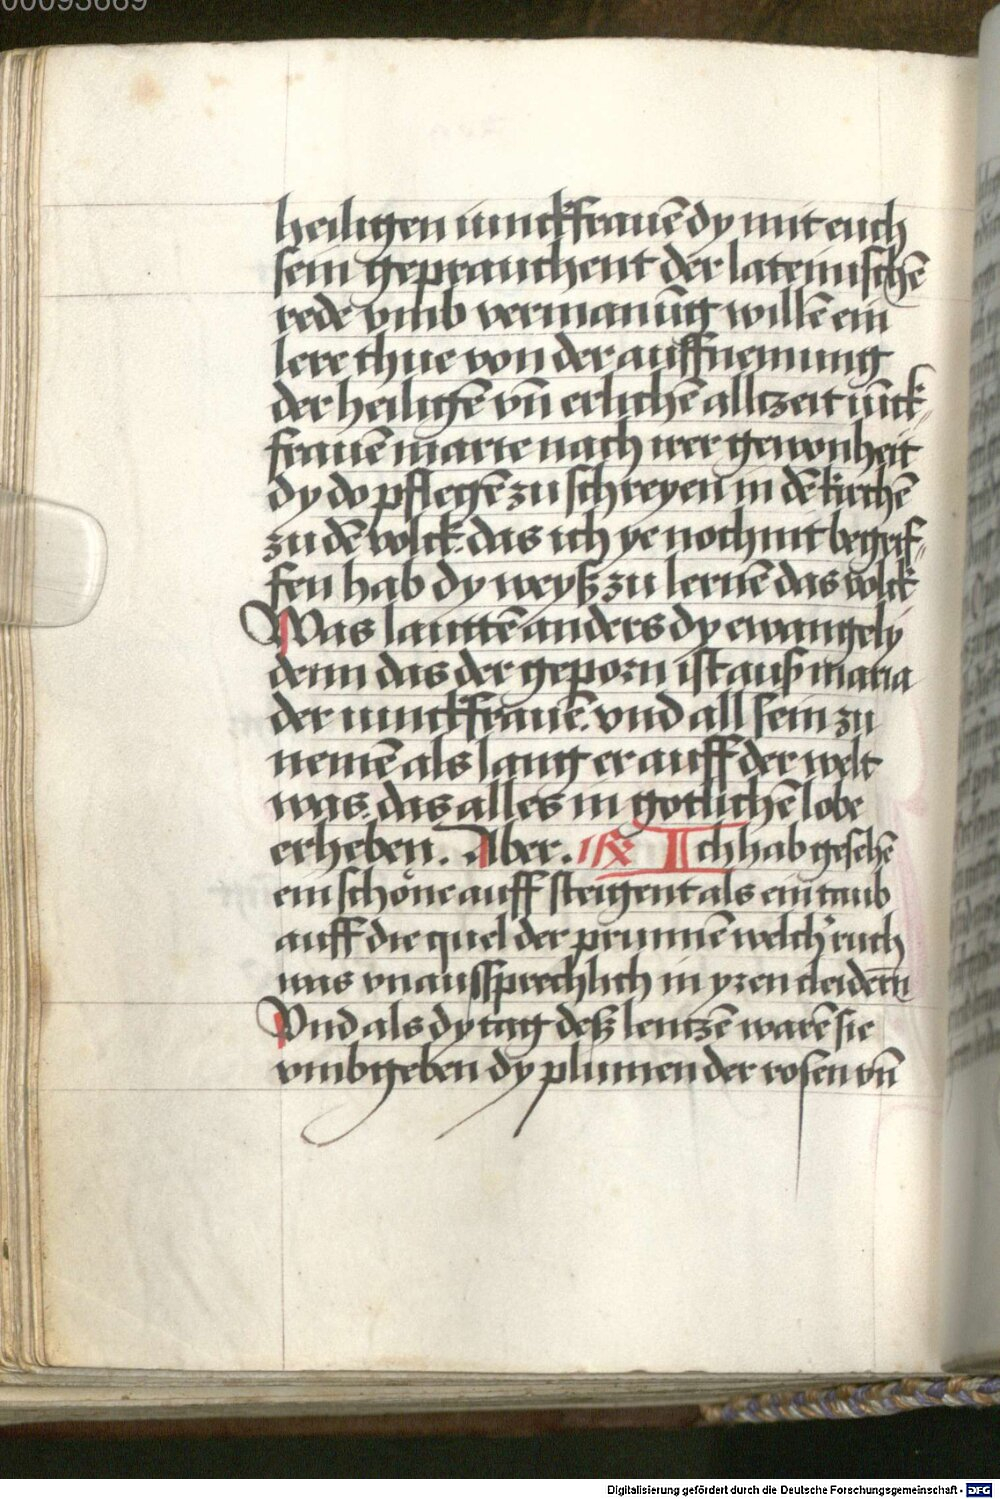 00093669
heiligen iunckfrauē dy mit euch
sein geprauchent der lateinischē
rede vmb vermanūg willē ein
lere thue von der auffnemung
der heiligē vn̄ erlichē alltzeit iūck„
frauē marie nach irer gewonheit
dy do pflegē zu schreyen in dē kirchē
zu dē volck. das ich ye noch nit begrif„
fen hab dy weyß zu lernē das volck
Was lauttē anders dy ewangely
denn das der geporn ist auß maria
der iunckfrauē. vnd all sein zu
nemē als lang er auff der welt
was. das alles in gotlichē lobe
erheben. Aber. Ich hab gesehē
ein schöne auff steigent als ein taub
auff die quel der prunnē welch' ruch
was vnaussprechlich in yren cleidern
Vnd als dy tag deß lentzē warē sie
vmbgeben dy plumen der rosen vn̄
Digitalisierung gefördert durch die Deutsche Forschungsgemeinschaft - DFG